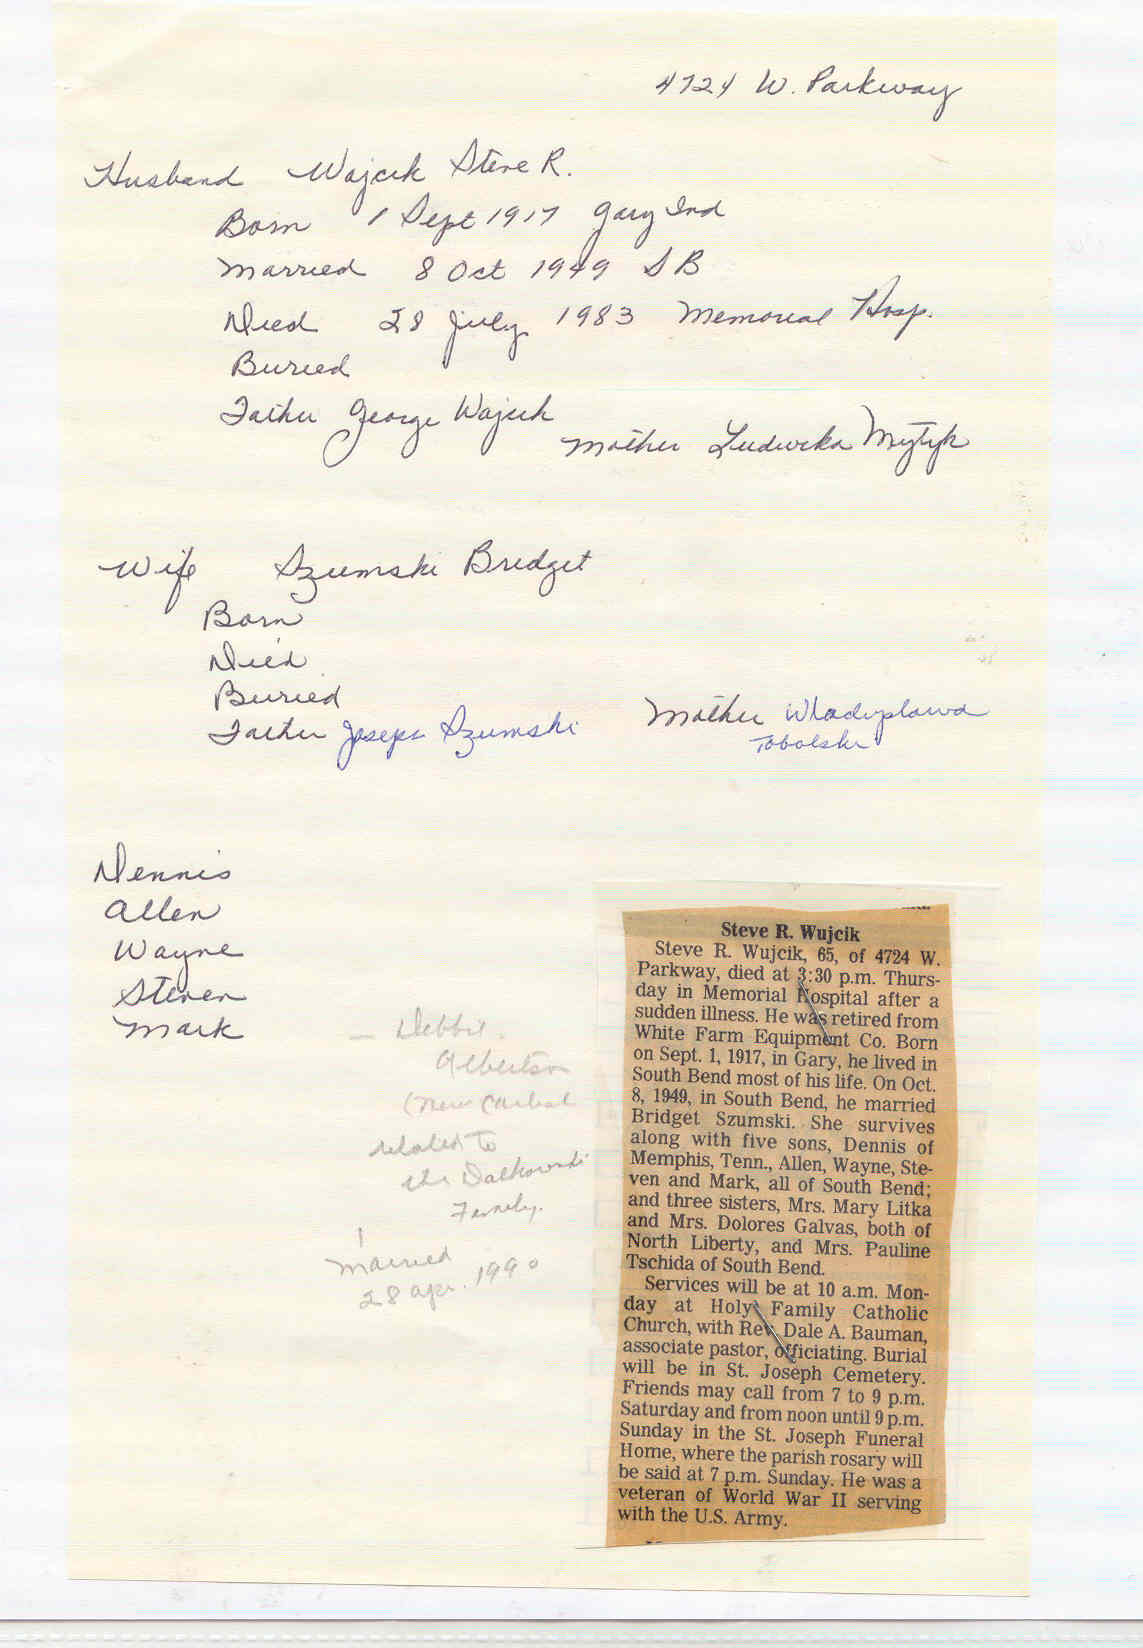 4724 W. Parkway
Husband Wojcik Steve R.
Born 1 Sept 1917 Gary Ind
Married 8 Oct 1949 S B
Died 28 July 1983 Memorial Hosp.
Buried
Father George Wojcik
Mother Ludwika Mytyk
Wife Szumski Bridget
Born
Died
Buried
Father Joseph Szumski Mother Wladyslawa
Tobolski
Dennis
Allen
Wayne
Steven
Mark — Debbie
Albertson
(New Carlisle
related to
the Dalkowski
Family.
Married
28 Apr. 1990
Steve R. Wujcik
Steve R. Wujcik, 65, of 4724 W.
Parkway, died at 3:30 p.m. Thurs-
day in Memorial Hospital after a
sudden illness. He was retired from
White Farm Equipment Co. Born
on Sept. 1, 1917, in Gary, he lived in
South Bend most of his life. On Oct.
8, 1949, in South Bend, he married
Bridget Szumski. She survives
along with five sons, Dennis of
Memphis, Tenn., Allen, Wayne, Ste-
ven and Mark, all of South Bend;
and three sisters, Mrs. Mary Litka
and Mrs. Dolores Galvas, both of
North Liberty, and Mrs. Pauline
Tschida of South Bend.
Services will be at 10 a.m. Mon-
day at Holy Family Catholic
Church, with Rev. Dale A. Bauman,
associate pastor, officiating. Burial
will be in St. Joseph Cemetery.
Friends may call from 7 to 9 p.m.
Saturday and from noon until 9 p.m.
Sunday in the St. Joseph Funeral
Home, where the parish rosary will
be said at 7 p.m. Sunday. He was a
veteran of World War II serving
with the U.S. Army.